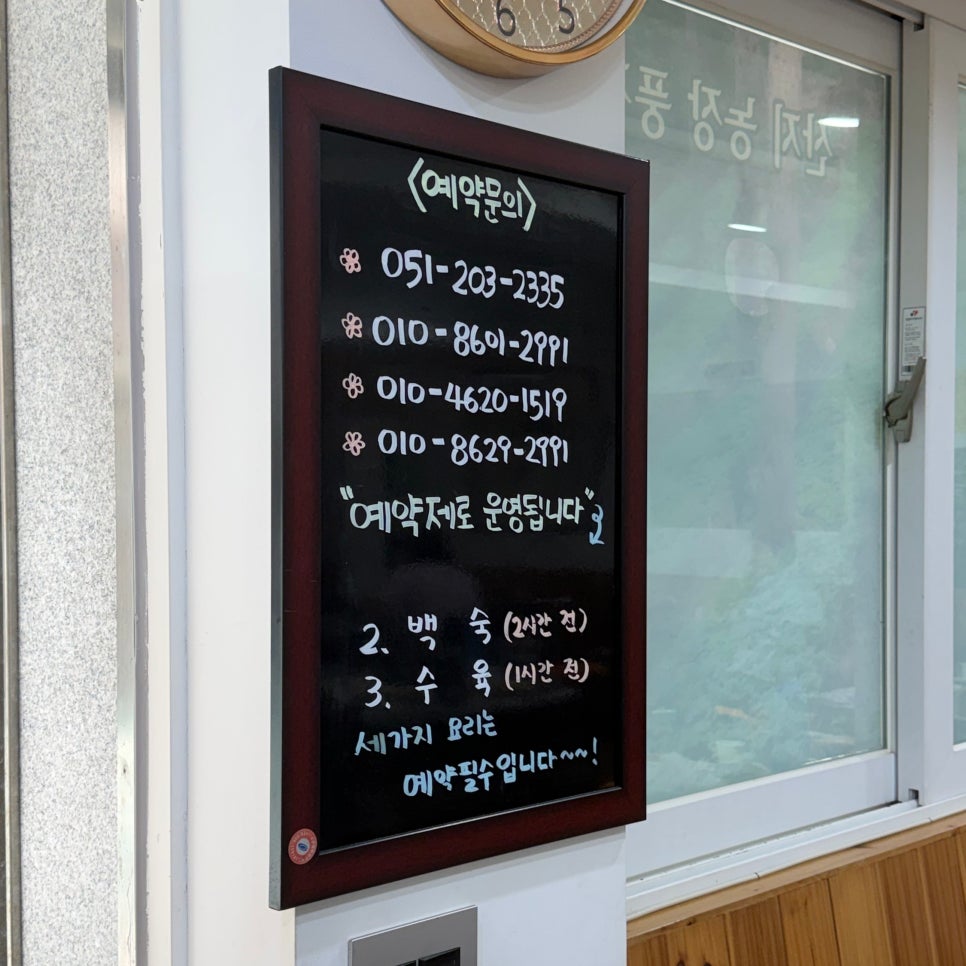 6 5
산지 농장 풍
<예약문의>
051-203-2335
010-8601-2991
010-4620-1519
010-8629-2991
"예약제로 운영됩니다"
2. 백 숙 (2시간 전)
3. 수 육 (1시간 전)
세가지 요리는
예약필수입니다~~!